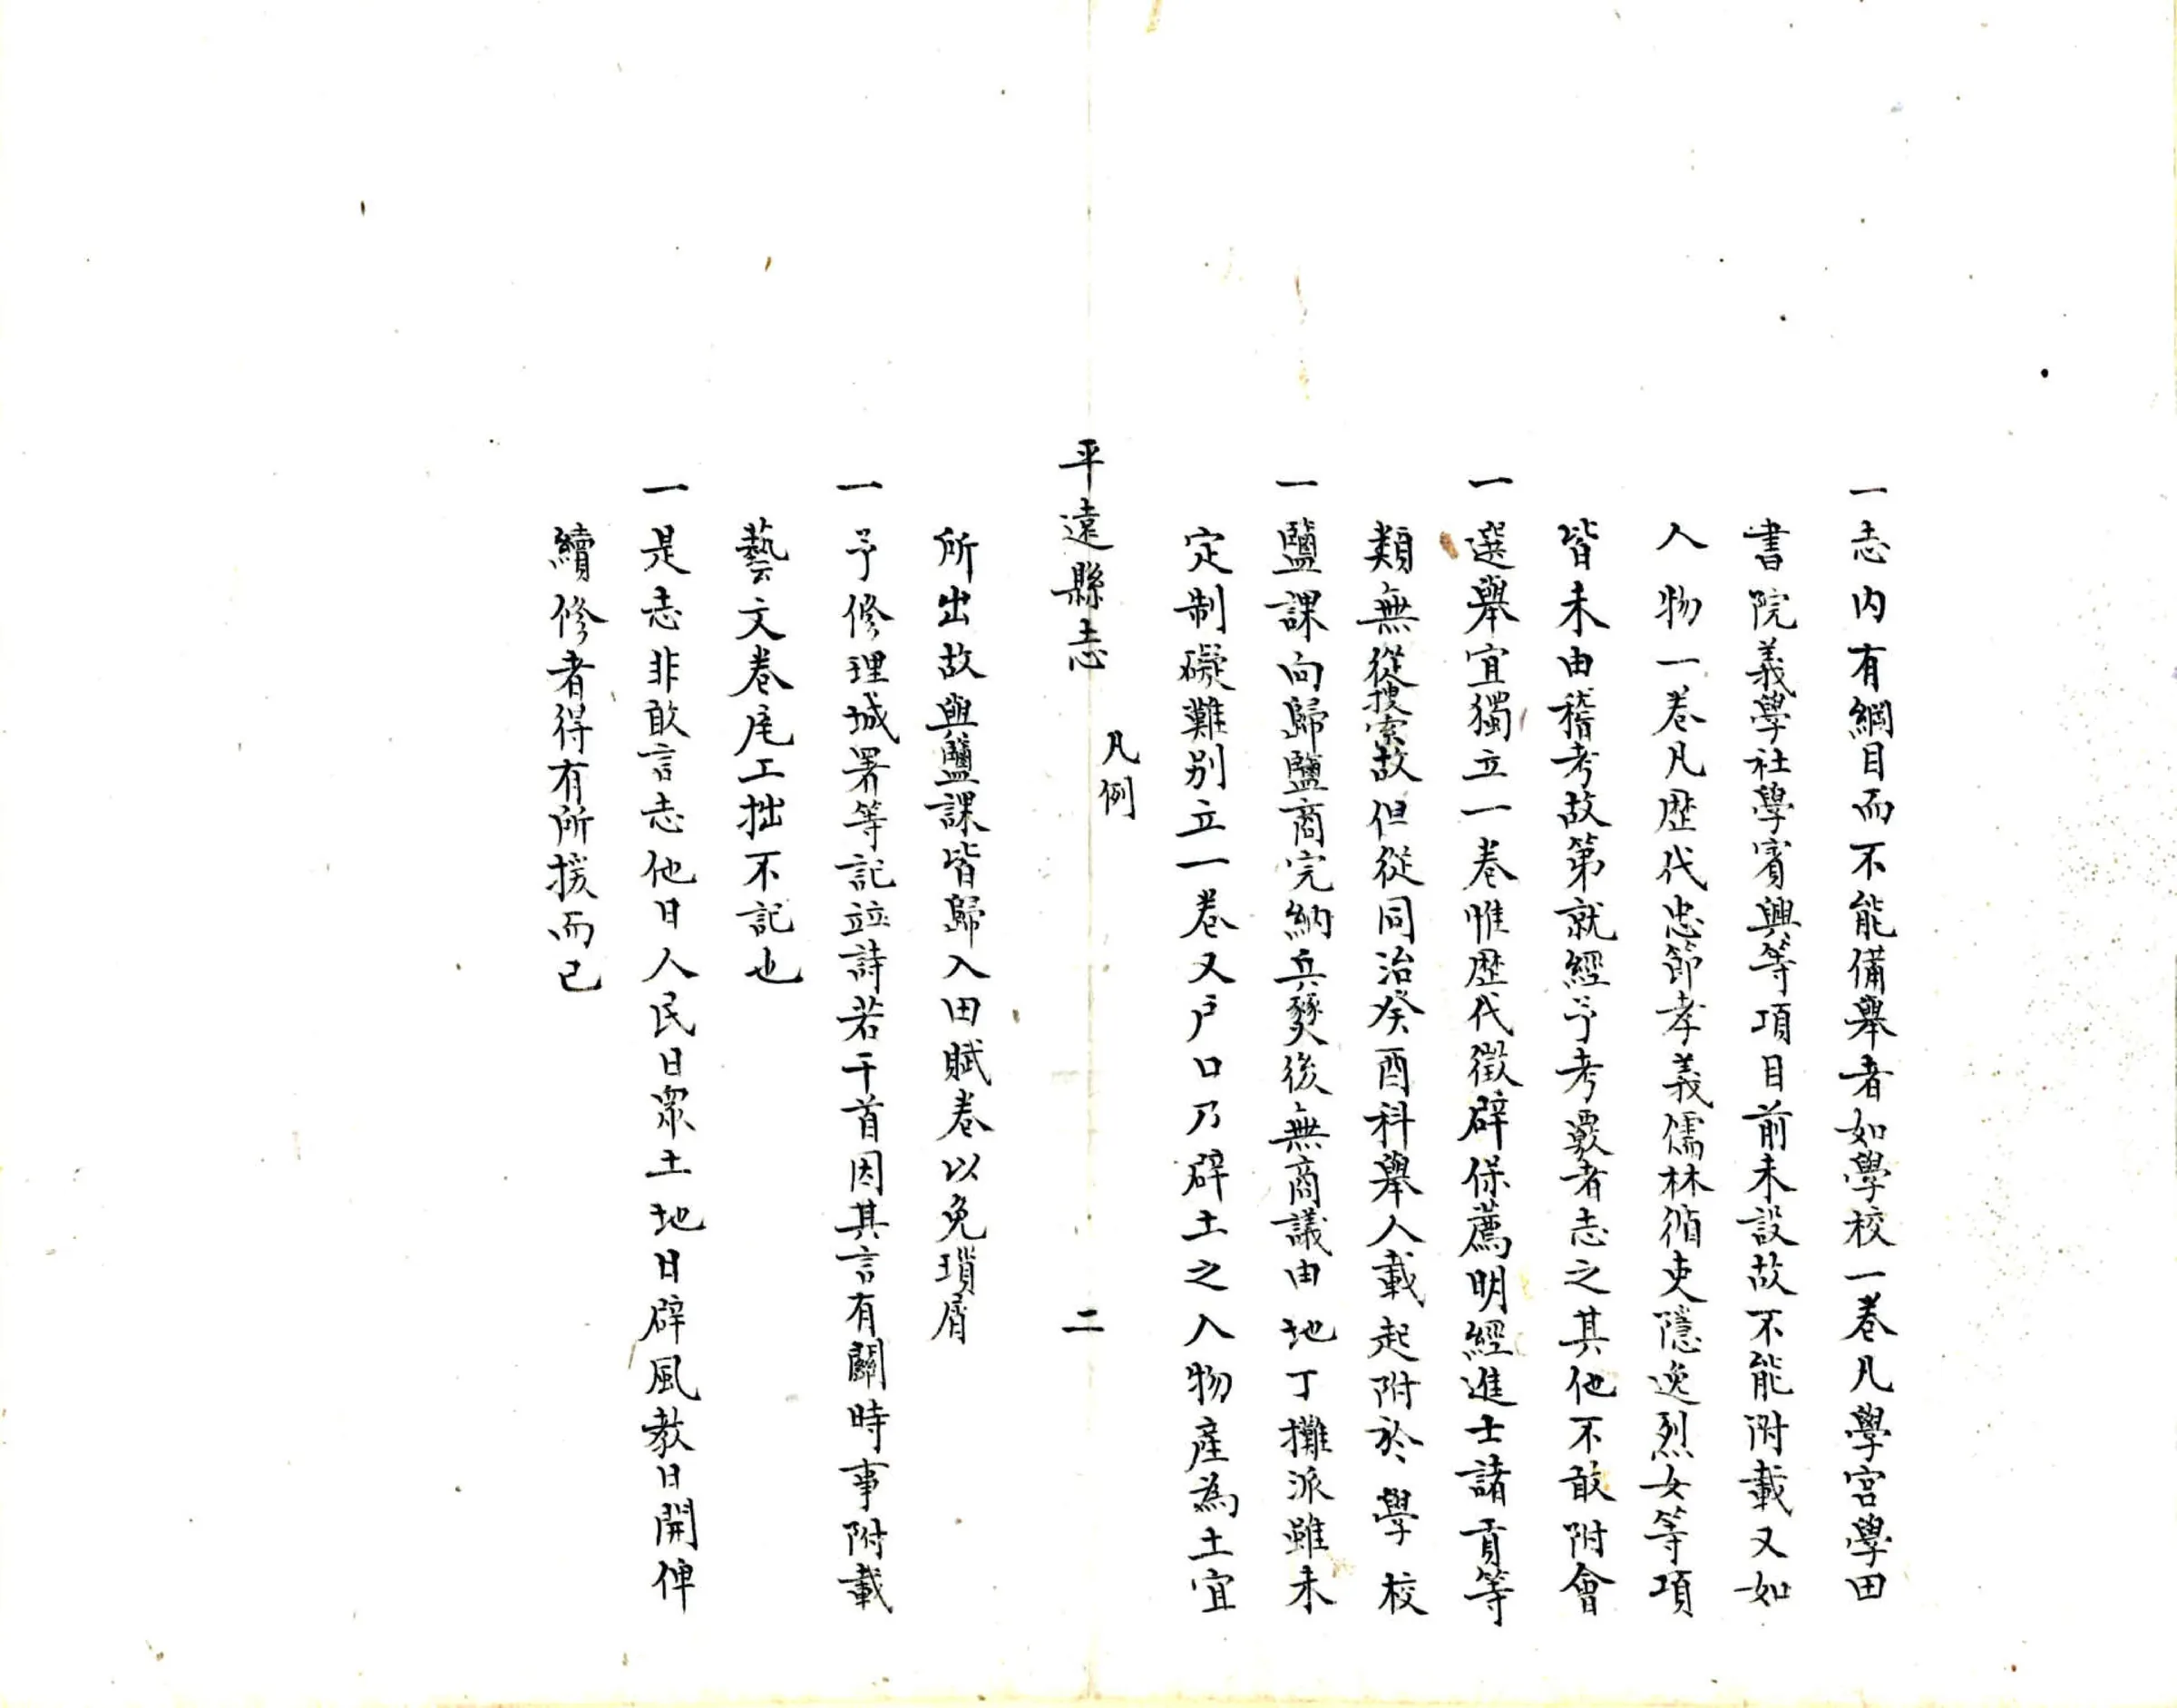 一志内有綱目而不能備舉者如學校一卷凡學宮學田
書院義學社學賓興等項目前未設故不能附載又如
人物一卷凡歷代忠節孝義儒林循吏隱逸烈女等項
皆未由稽考故第就經予考覈者志之其他不敢附會
一選舉宜獨立一卷惟歷代徵辟保薦明經進士諸貢等
類無從搜索故但從同治癸酉科舉人載起附於學校
一鹽課向歸鹽商完納兵燹後無商議由地丁攤派雖未
定制礙難別立一卷又戶口乃辟土之入物產為土宜
平遠縣志 凡例 二
所出故與鹽課皆歸入田賦卷以免瑣屑
一予修理城署等記竝詩若干首因其言有關時事附載
藝文卷尾工拙不記也
一是志非敢言志他日人民日眾土地日辟風教日開俾
續修者得有所援而已